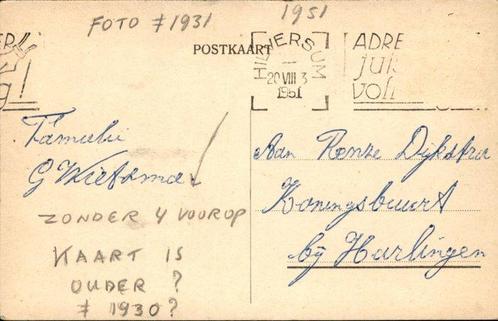 FOTO ± 1931
1951
POSTKAART
HILVERSUM
20 VIII 3
1951
ADRE
jui
voll
g!
Familie
G Wietsma
ZONDER 4 VOOROP
KAART IS
OUDER ?
± 1930?
Aan Renze Dijkstra
Koningsbuurt
bij Harlingen